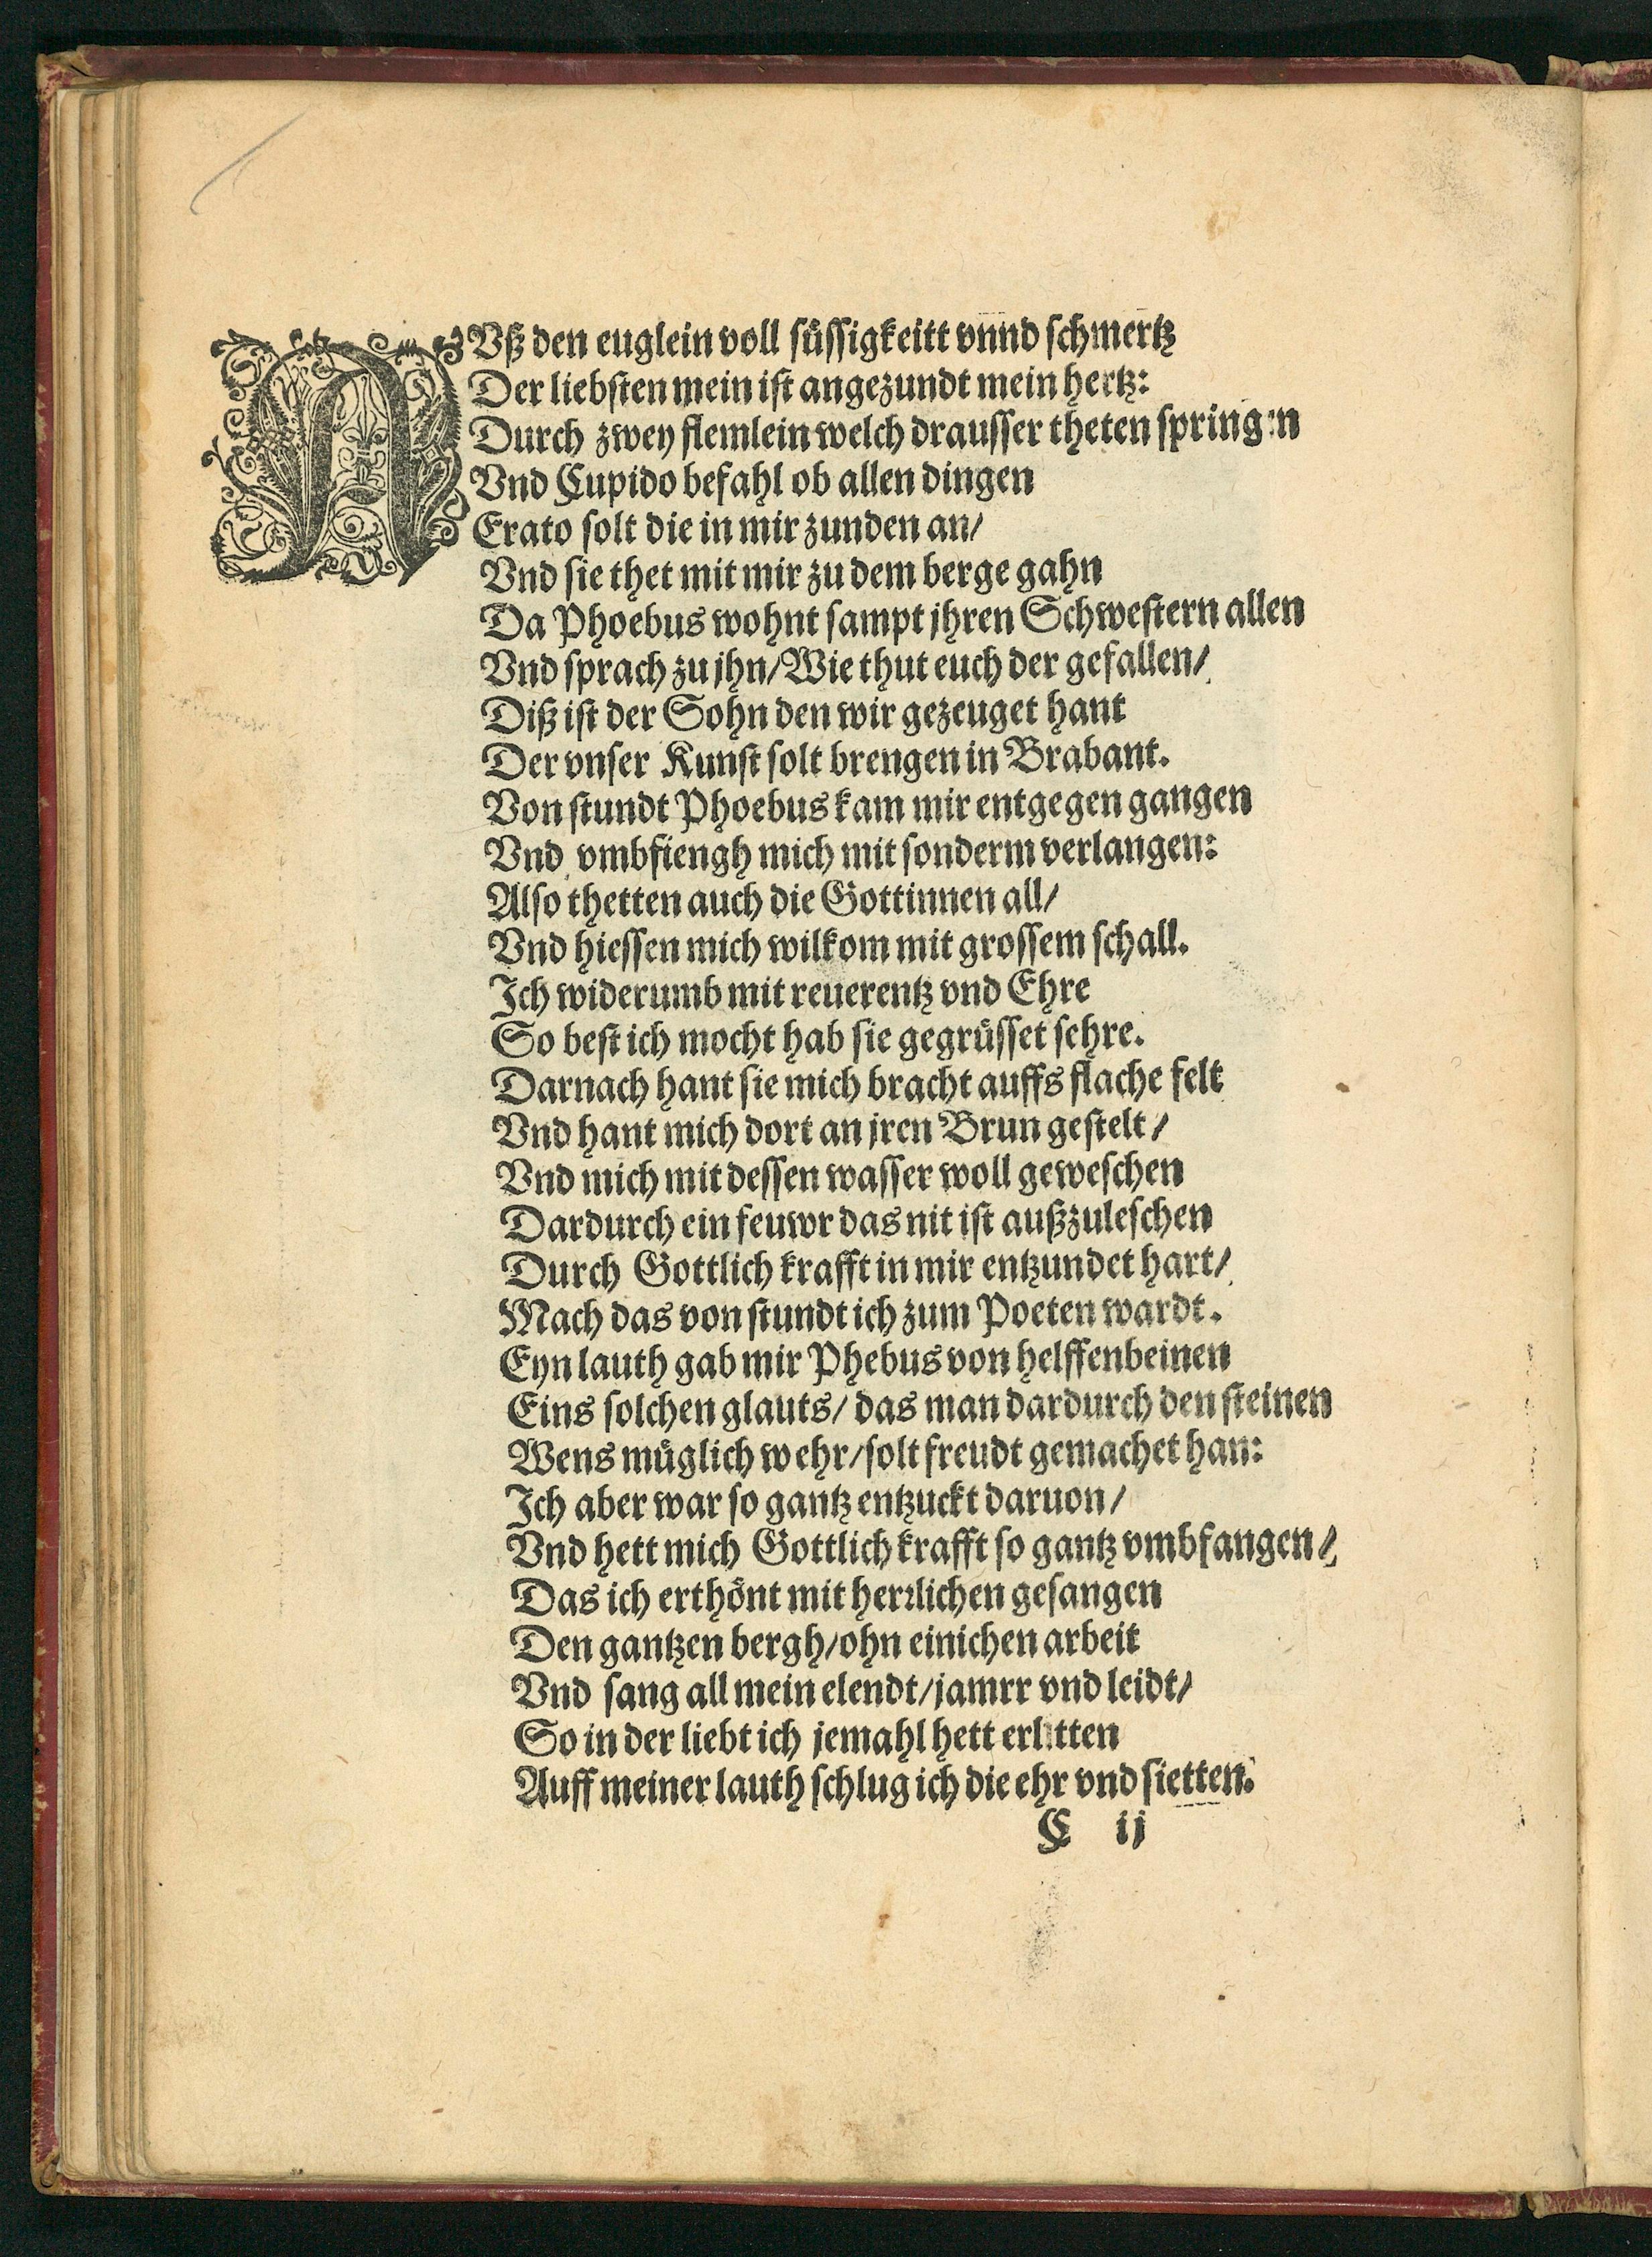 AVß den euglein voll süssigkeitt vnnd schmertz
Der liebsten mein ist angezundt mein hertz:
Durch zwey flemlein welch drausser theten springen
Vnd Cupido befahl ob allen dingen
Erato solt die in mir zunden an/
Vnd sie thet mit mir zu dem berge gahn
Da Phoebus wohnt sampt jhren Schwestern allen
Vnd sprach zu jhn/ Wie thut euch der gefallen/
Diß ist der Sohn den wir gezeuget hant
Der vnser Kunst solt brengen in Brabant.
Von stundt Phoebus kam mir entgegen gangen
Vnd vmbfiengh mich mit sonderm verlangen:
Also thetten auch die Gottinnen all/
Vnd hiessen mich wilkom mit grossem schall.
Ich widerumb mit reuerentz vnd Ehre
So best ich mocht hab sie gegrüsset sehre.
Darnach hant sie mich bracht auffs flache felt
Vnd hant mich dort an jren Brun gestelt/
Vnd mich mit dessen wasser woll geweschen
Dardurch ein feuwr das nit ist außzuleschen
Durch Gottlich krafft in mir entzundet hart/
Mach das von stundt ich zum Poeten wardt.
Eyn lauth gab mir Phebus von helffenbeinen
Eins solchen glauts/ das man dardurch den steinen
Wens müglich wehr/ solt freudt gemachet han:
Ich aber war so gantz entzuckt daruon/
Vnd hett mich Gottlich krafft so gantz vmbfangen/
Das ich erthönt mit herrlichen gesangen
Den gantzen bergh/ ohn einichen arbeit
Vnd sang all mein elendt/ jamrr vnd leidt/
So in der liebt ich jemahl hett erlitten
Auff meiner lauth schlug ich die ehr vnd sietten.
C ij